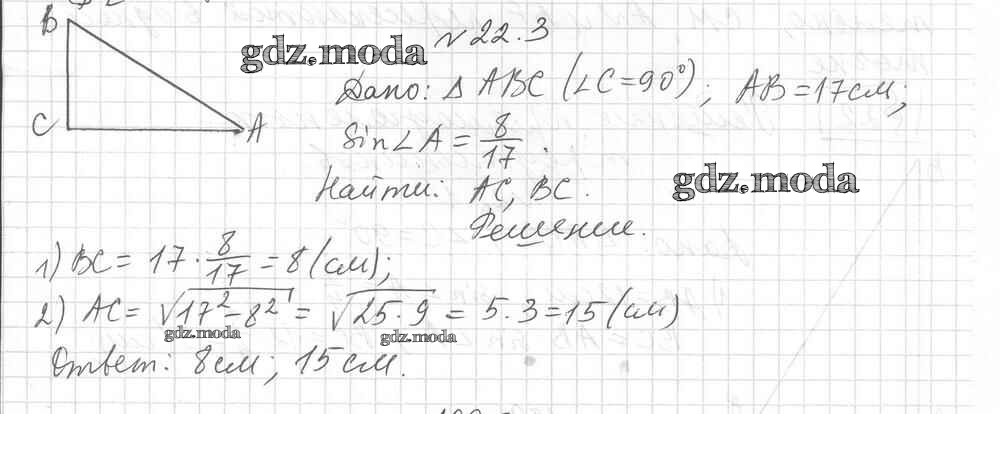 B
C
A
gdz.moda
№ 22.3
Дано: Δ ABC (∠C=90°); AB=17см;
Sin∠A = 8/17.
gdz.moda
Найти: AC, BC.
Решение.
1) BC = 17 · 8/17 = 8 (см);
2) AC = √17²-8² = √25·9 = 5·3 = 15 (см)
gdz.moda gdz.moda
Ответ: 8см; 15см.